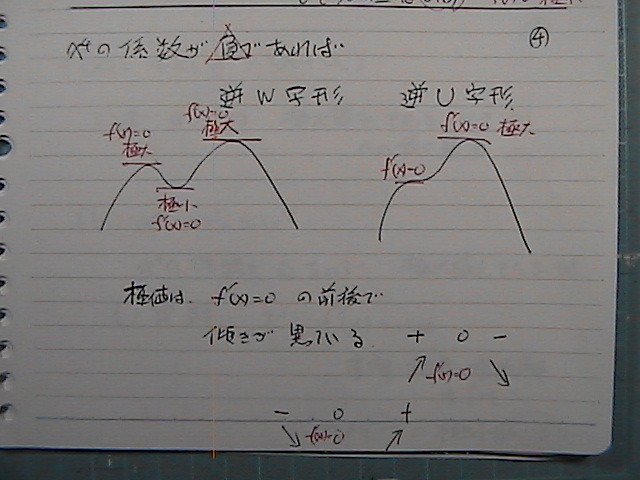 ④
x⁴の係数が負であれば
逆W字形 逆U字形
f'(x)=0 極大
f'(x)=0 極大
極小 f'(x)=0
f'(x)=0
f'(x)=0 極大
極値は、f'(x)=0 の前後で
傾きが異っている。 + 0 −
↗ f'(x)=0 ↘
− 0 +
↘ f'(x)=0 ↗